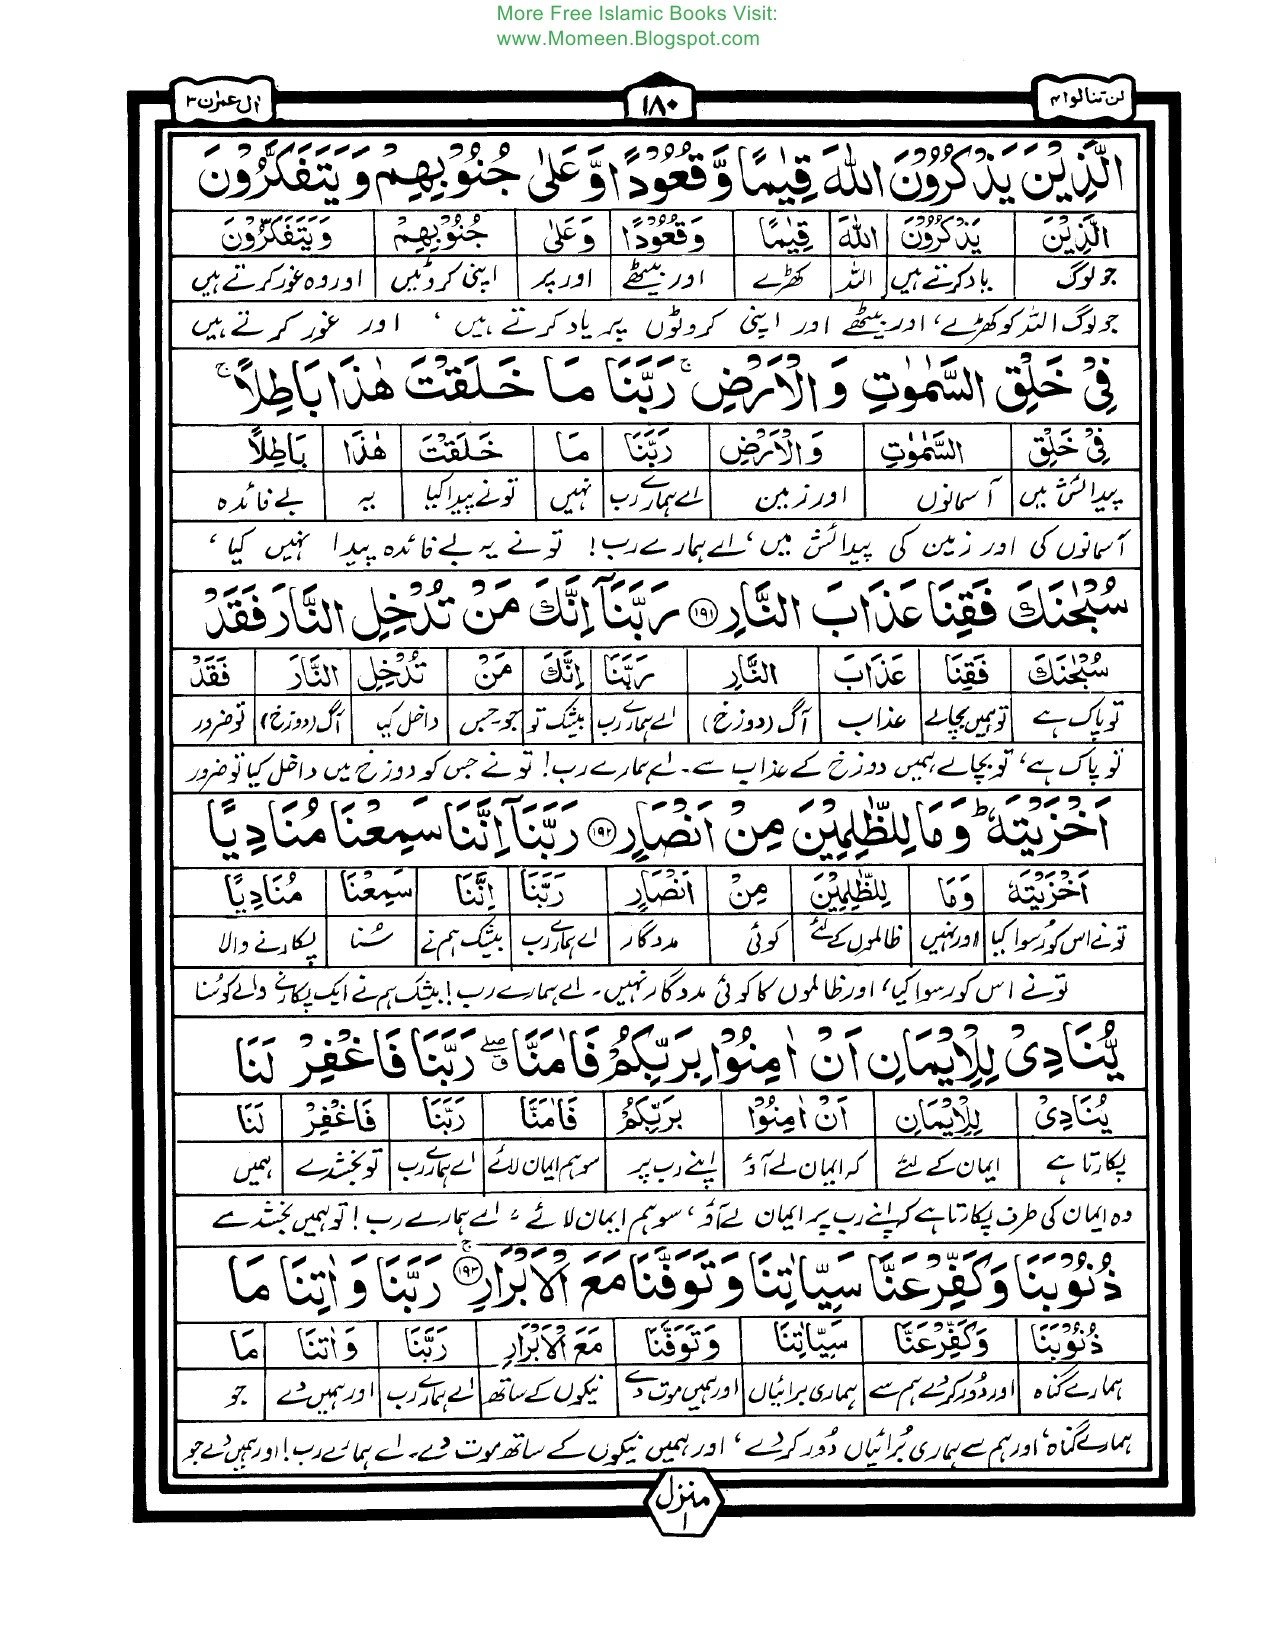 More Free Islamic Books Visit:
www.Momeen.Blogspot.com
لن تنالوا ۴
۱۸۰
اٰل عمرٰن ۳
الَّذِیْنَ یَذْكُرُوْنَ اللّٰهَ قِیٰمًا وَّقُعُوْدًا وَّعَلٰی جُنُوْبِهِمْ وَیَتَفَكَّرُوْنَ
الَّذِیْنَ یَذْكُرُوْنَ اللّٰهَ قِیٰمًا وَّقُعُوْدًا وَّعَلٰی جُنُوْبِهِمْ وَیَتَفَكَّرُوْنَ
جو لوگ یاد کرتے ہیں اللہ کھڑے اور بیٹھے اور پر اپنی کروٹیں اور وہ غور کرتے ہیں
جو لوگ اللہ کو کھڑے، اور بیٹھے اور اپنی کروٹوں پر یاد کرتے ہیں، اور غور کرتے ہیں
فِیْ خَلْقِ السَّمٰوٰتِ وَالْاَرْضِ ۚ رَبَّنَا مَا خَلَقْتَ هٰذَا بَاطِلًا ۚ
فِیْ خَلْقِ السَّمٰوٰتِ وَالْاَرْضِ رَبَّنَا مَا خَلَقْتَ هٰذَا بَاطِلًا
پیدائش میں آسمانوں اور زمین اے ہمارے رب نہیں تونے پیدا کیا یہ بے فائدہ
آسمانوں کی اور زمین کی پیدائش میں، اے ہمارے رب! تو نے یہ بے فائدہ پیدا نہیں کیا،
سُبْحٰنَكَ فَقِنَا عَذَابَ النَّارِ ﴿۱۹۱﴾ رَبَّنَاۤ اِنَّكَ مَنْ تُدْخِلِ النَّارَ فَقَدْ
سُبْحٰنَكَ فَقِنَا عَذَابَ النَّارِ رَبَّنَا اِنَّكَ مَنْ تُدْخِلِ النَّارَ فَقَدْ
تو پاک ہے تو ہمیں بچالے عذاب آگ (دوزخ) اے ہمارے رب بیشک تو جو۔جس داخل کیا آگ (دوزخ) تو ضرور
تو پاک ہے، تو بچالے ہمیں دوزخ کے عذاب سے۔ اے ہمارے رب! تو نے جس کو دوزخ میں داخل کیا تو ضرور
اَخْزَیْتَهٗ ؕ وَمَا لِلظّٰلِمِیْنَ مِنْ اَنْصَارٍ ﴿۱۹۲﴾ رَبَّنَاۤ اِنَّنَا سَمِعْنَا مُنَادِیًا
اَخْزَیْتَهٗ وَمَا لِلظّٰلِمِیْنَ مِنْ اَنْصَارٍ رَبَّنَا اِنَّنَا سَمِعْنَا مُنَادِیًا
تونے اس کو رسوا کیا اور نہیں ظالموں کے لئے کوئی مددگار اے ہمارے رب بیشک ہم نے سُنا پکارنے والا
تو نے اس کو رسوا کیا، اور ظالموں کا کوئی مددگار نہیں۔ اے ہمارے رب! بیشک ہم نے ایک پکارنے والے کو سُنا
یُّنَادِیْ لِلْاِیْمَانِ اَنْ اٰمِنُوْا بِرَبِّكُمْ فَاٰمَنَّا ۖۗ رَبَّنَا فَاغْفِرْ لَنَا
یُنَادِیْ لِلْاِیْمَانِ اَنْ اٰمِنُوْا بِرَبِّكُمْ فَاٰمَنَّا رَبَّنَا فَاغْفِرْ لَنَا
پکارتا ہے ایمان کے لئے کہ ایمان لے آؤ اپنے رب پر سو ہم ایمان لائے اے ہمارے رب تو بخشدے ہمیں
وہ ایمان کی طرف پکارتا ہے کہ اپنے رب پر ایمان لے آؤ، سو ہم ایمان لائے، اے ہمارے رب! تو ہمیں بخشدے
ذُنُوْبَنَا وَكَفِّرْ عَنَّا سَیِّاٰتِنَا وَتَوَفَّنَا مَعَ الْاَبْرَارِ ﴿۱۹۳﴾ ۚ رَبَّنَا وَاٰتِنَا مَا
ذُنُوْبَنَا وَكَفِّرْ عَنَّا سَیِّاٰتِنَا وَتَوَفَّنَا مَعَ الْاَبْرَارِ رَبَّنَا وَاٰتِنَا مَا
ہمارے گناہ اور دُور کردے ہم سے ہماری برائیاں اور ہمیں موت دے نیکوں کے ساتھ اے ہمارے رب اور ہمیں دے جو
ہمارے گناہ، اور ہم سے ہماری بُرائیاں دُور کردے، اور ہمیں نیکوں کے ساتھ موت دے۔ اے ہمارے رب! اور ہمیں دے جو
منزل
۱